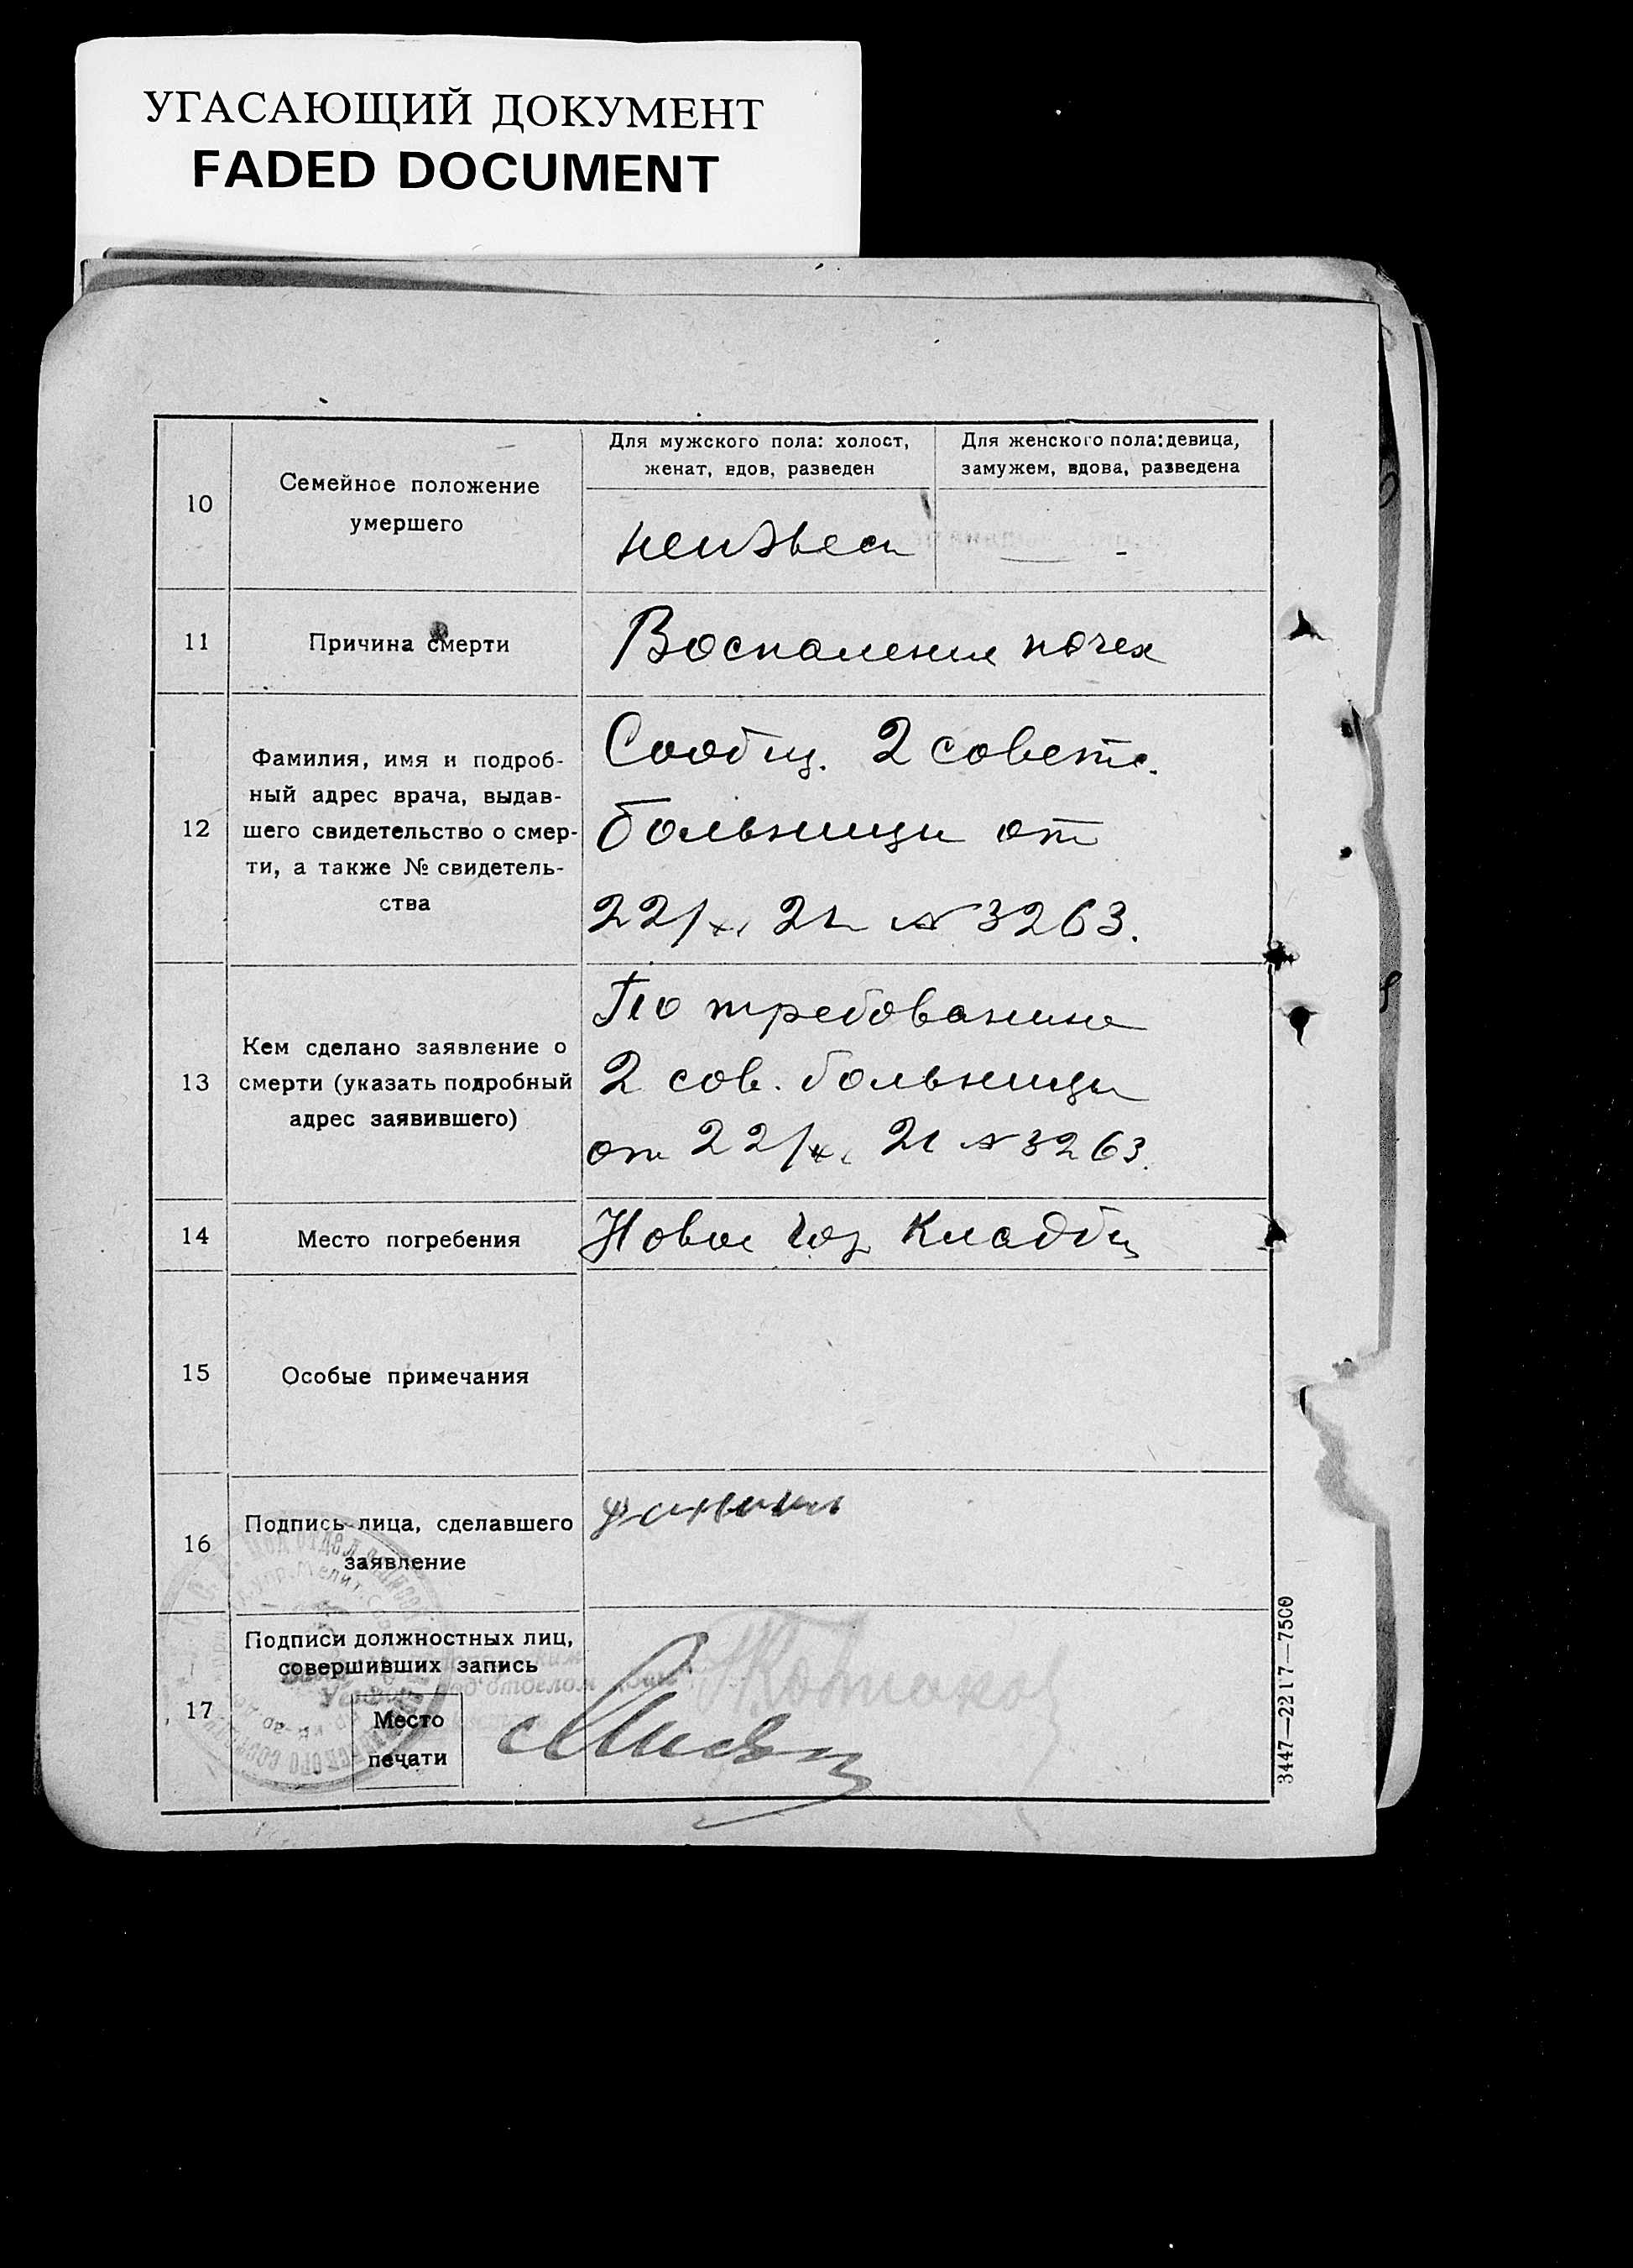 УГАСАЮЩИЙ ДОКУМЕНТ
FADED DOCUMENT
10
Семейное положение
умершего
Для мужского пола: холост,
женат, вдов, разведен
Для женского пола: девица,
замужем, вдова, разведена
неизвесн
11
Причина смерти
Воспаление почек
12
Фамилия, имя и подроб-
ный адрес врача, выдав-
шего свидетельство о смер-
ти, а также № свидетель-
ства
Сообщ. 2 советс.
больницы от
22/XI 21 № 3263.
13
Кем сделано заявление о
смерти (указать подробный
адрес заявившего)
По требованию
2 сов. больницы
от 22/XI 21 № 3263.
14
Место погребения
Новое гор Кладбщ
15
Особые примечания
16
Подпись лица, сделавшего
заявление
17
Подписи должностных лиц,
совершивших запись
Место
печати
3447—2217—7500